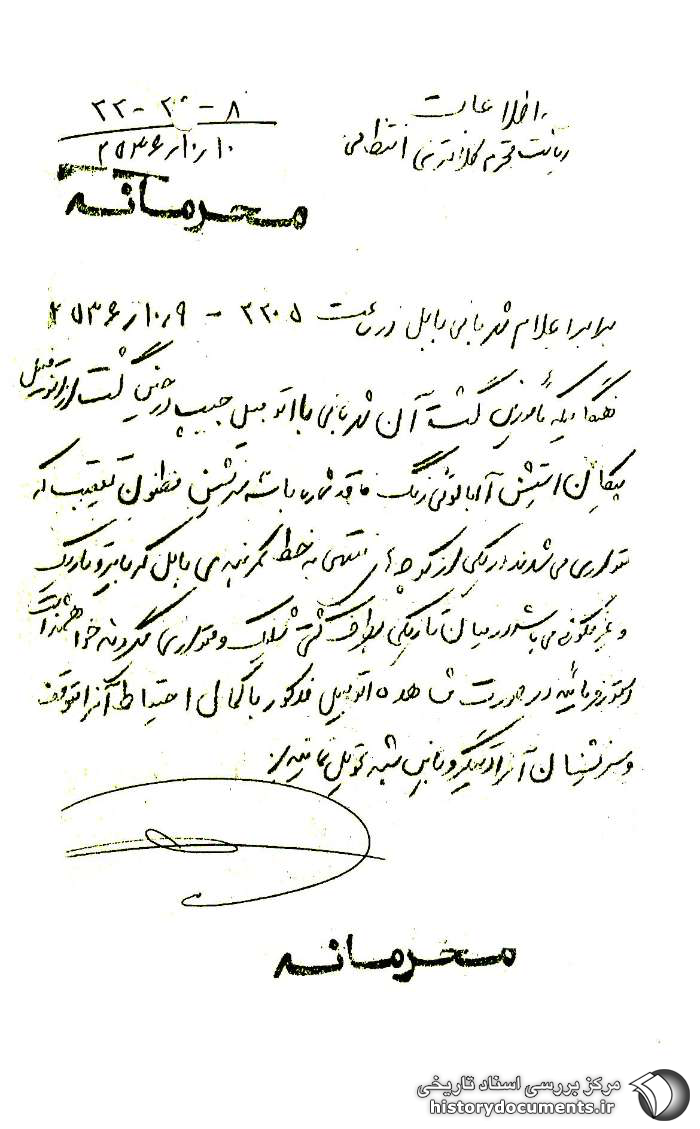 اطلاعات
ریاست محترم کلانتری انتظامی
۸ - ۲۰ - ۲۲
۲۵۳۶/۱۰/۱۰
محرمانه
برابر اعلام شهربانی بابل در ساعت ۲۲۰۵ - ۲۵۳۶/۱۰/۹
هنگامیکه مأمورین گشت آن شهربانی با اتومبیل جیپ در حین گشت از اتومبیل
پیکان استیشن آلبالوئی رنگ فاقد شماره با سه سرنشین مظنون تعقیب که
متواری می‌شوند در یکی از کوچه‌های منتهی به خط کمربندی بابل که تاریک
و غیر مسکونی می‌باشد در میان تاریکی بطرف گشت شلیک و متواری میگردند خواهشمند است
دستور فرمائید در صورت مشاهده اتومبیل مذکور با کمال احتیاط آنرا متوقف
و سرنشینان آنرا دستگیر و باین شعبه تحویل نمایند
محرمانه
مرکز بررسی اسناد تاریخی
historydocuments.ir